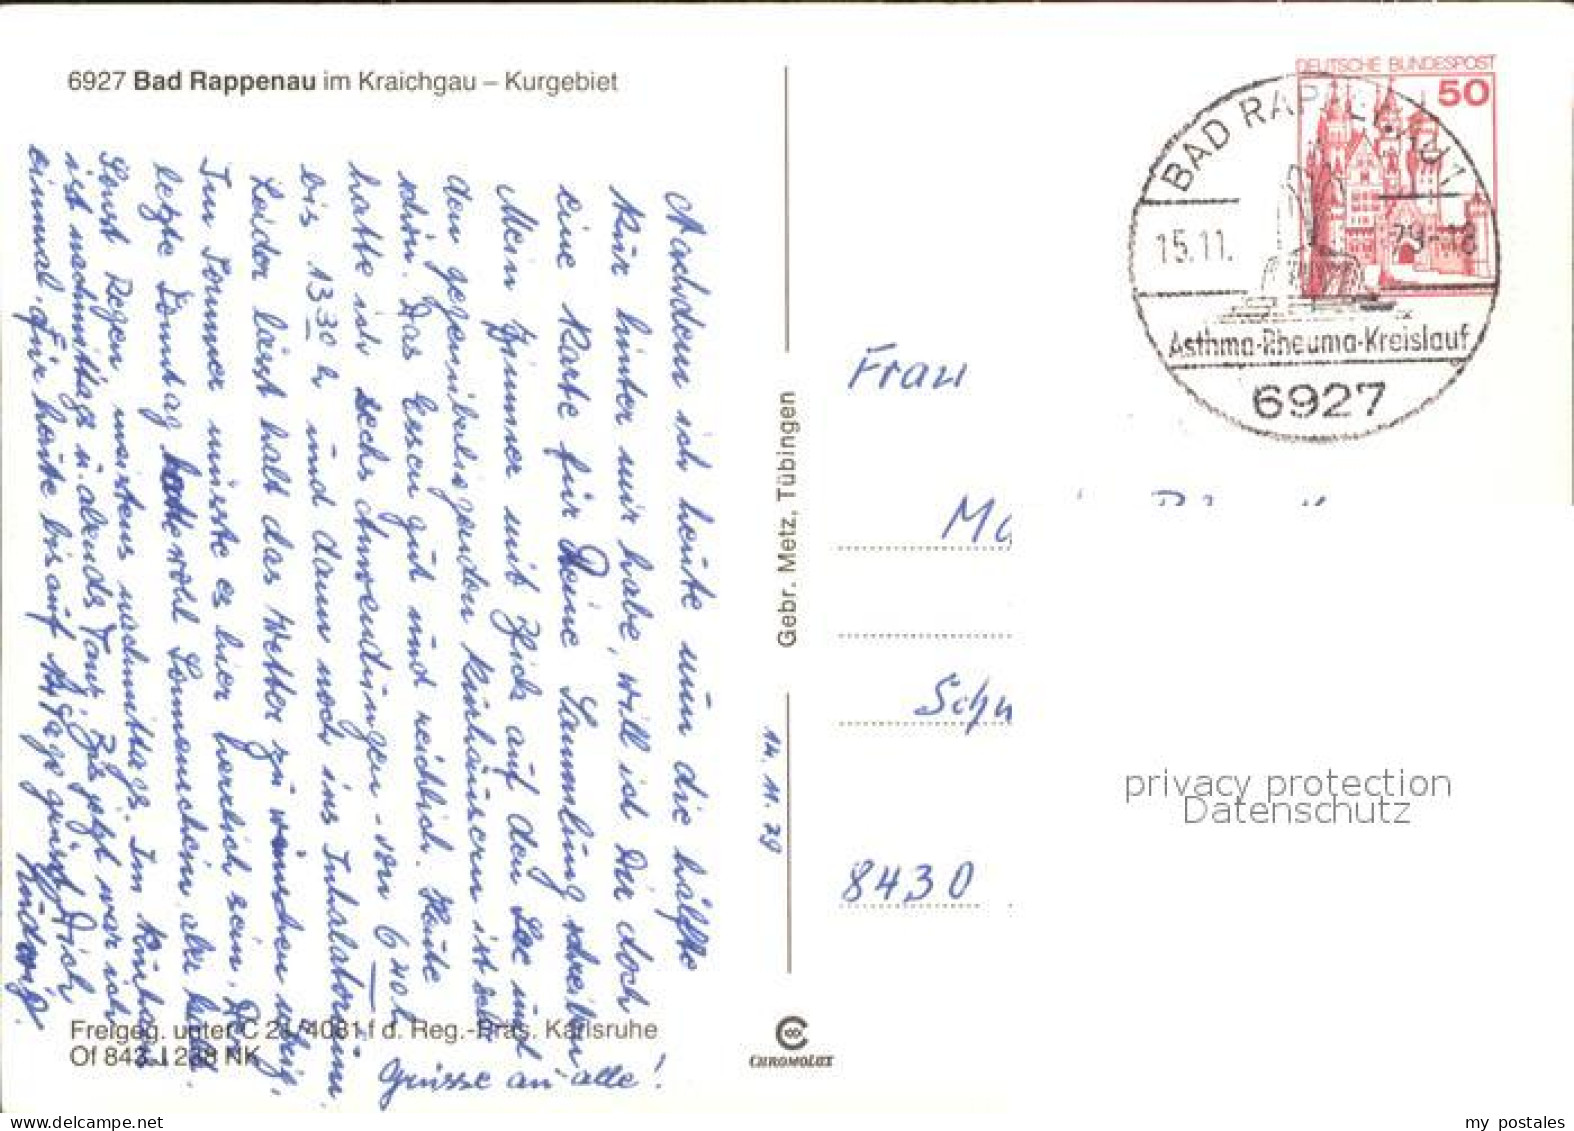 6927 Bad Rappenau im Kraichgau – Kurgebiet
Nachdem ich heute nun die Hälfte
Kur hinter mir habe, will ich Dir doch
eine Karte für Deine Sammlung schreiben.
Mein Zimmer mit Blick auf den See und
den gegenüberliegenden Kurhäusern ist sehr
schön. Das Essen gut und reichlich. Heute
hatte ich sechs Anwendungen - von 6 40 h
bis 13 30 h und dann noch ins Inhalatorium.
Leider lässt halt das Wetter zu wünschen übrig.
Im Sommer müsste es hier herrlich sein. Der
letzte Sonntag hatte wohl Sonnenschein, aber kalt.
Sonst Regen meistens nachmittags. Im Kurhaus
ist nachmittags u. abends Tanz. Bis jetzt war ich
einmal. Für heute bis auf grüsst Dich
Ludwig.
Grüsse an alle!
14. 11. 79
Gebr. Metz, Tübingen
Freigeg. unter C 21/4081 f d. Reg.-Präs. Karlsruhe
Of 843 J 238 NK
CHROMOLUX
DEUTSCHE BUNDESPOST
50
BAD RAPPENAU 1
15.11. 79-18
Asthma-Rheuma-Kreislauf
6927
Frau
Ma
Sch
8430
privacy protection
Datenschutz
my postales